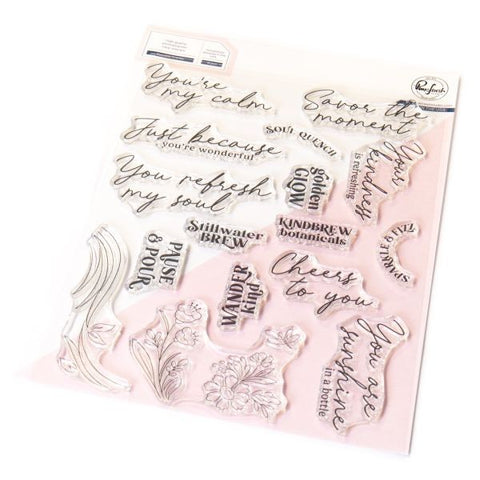 You're
my calm
Savor the
moment
Just because
you're wonderful
SOUL QUENCH
Your
kindness
is refreshing
You refresh
my soul
golden
GLOW
Stillwater
BREW
KINDBREW
botanicals
SPARKLE
PAUSE
& POUR
pink
WANDER
Cheers
to you
You are
sunshine
in a bottle